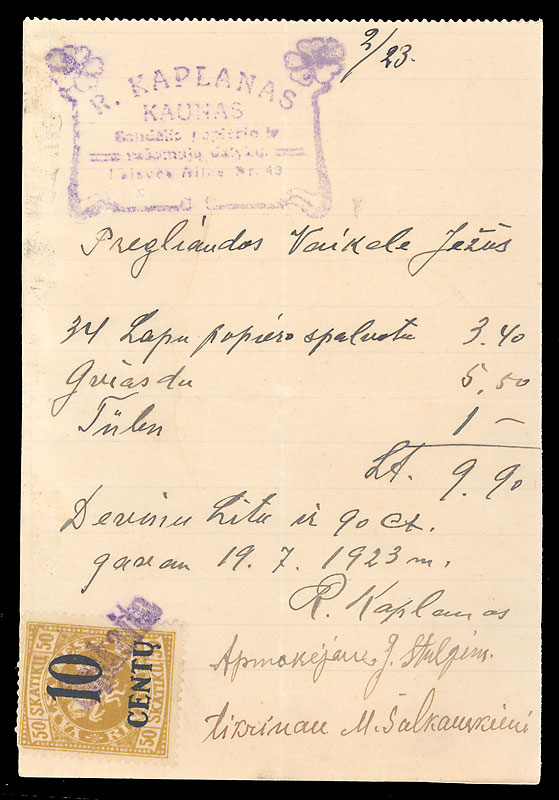 2/23.
R. KAPLANAS
KAUNAS
Sandėlis popierio ir
rašomųjų dalykų.
Laisvės Alėja Nr. 43
Pregliaudos Vaikele Jėzüs
34 Lapu popiero spalvotu 3.40
Gviasdu 5.50
Tülen 1 —
Lt. 9.90
Devinu Litu ir 90 ct.
gavau 19. 7. 1923 m.
R. Kaplanas
Apmokėjau J. Stulpin.
tikrinau M. Šalkauskienė
50 SKATIKŲ 50
10
CENTŲ
50 SKATIKŲ 50